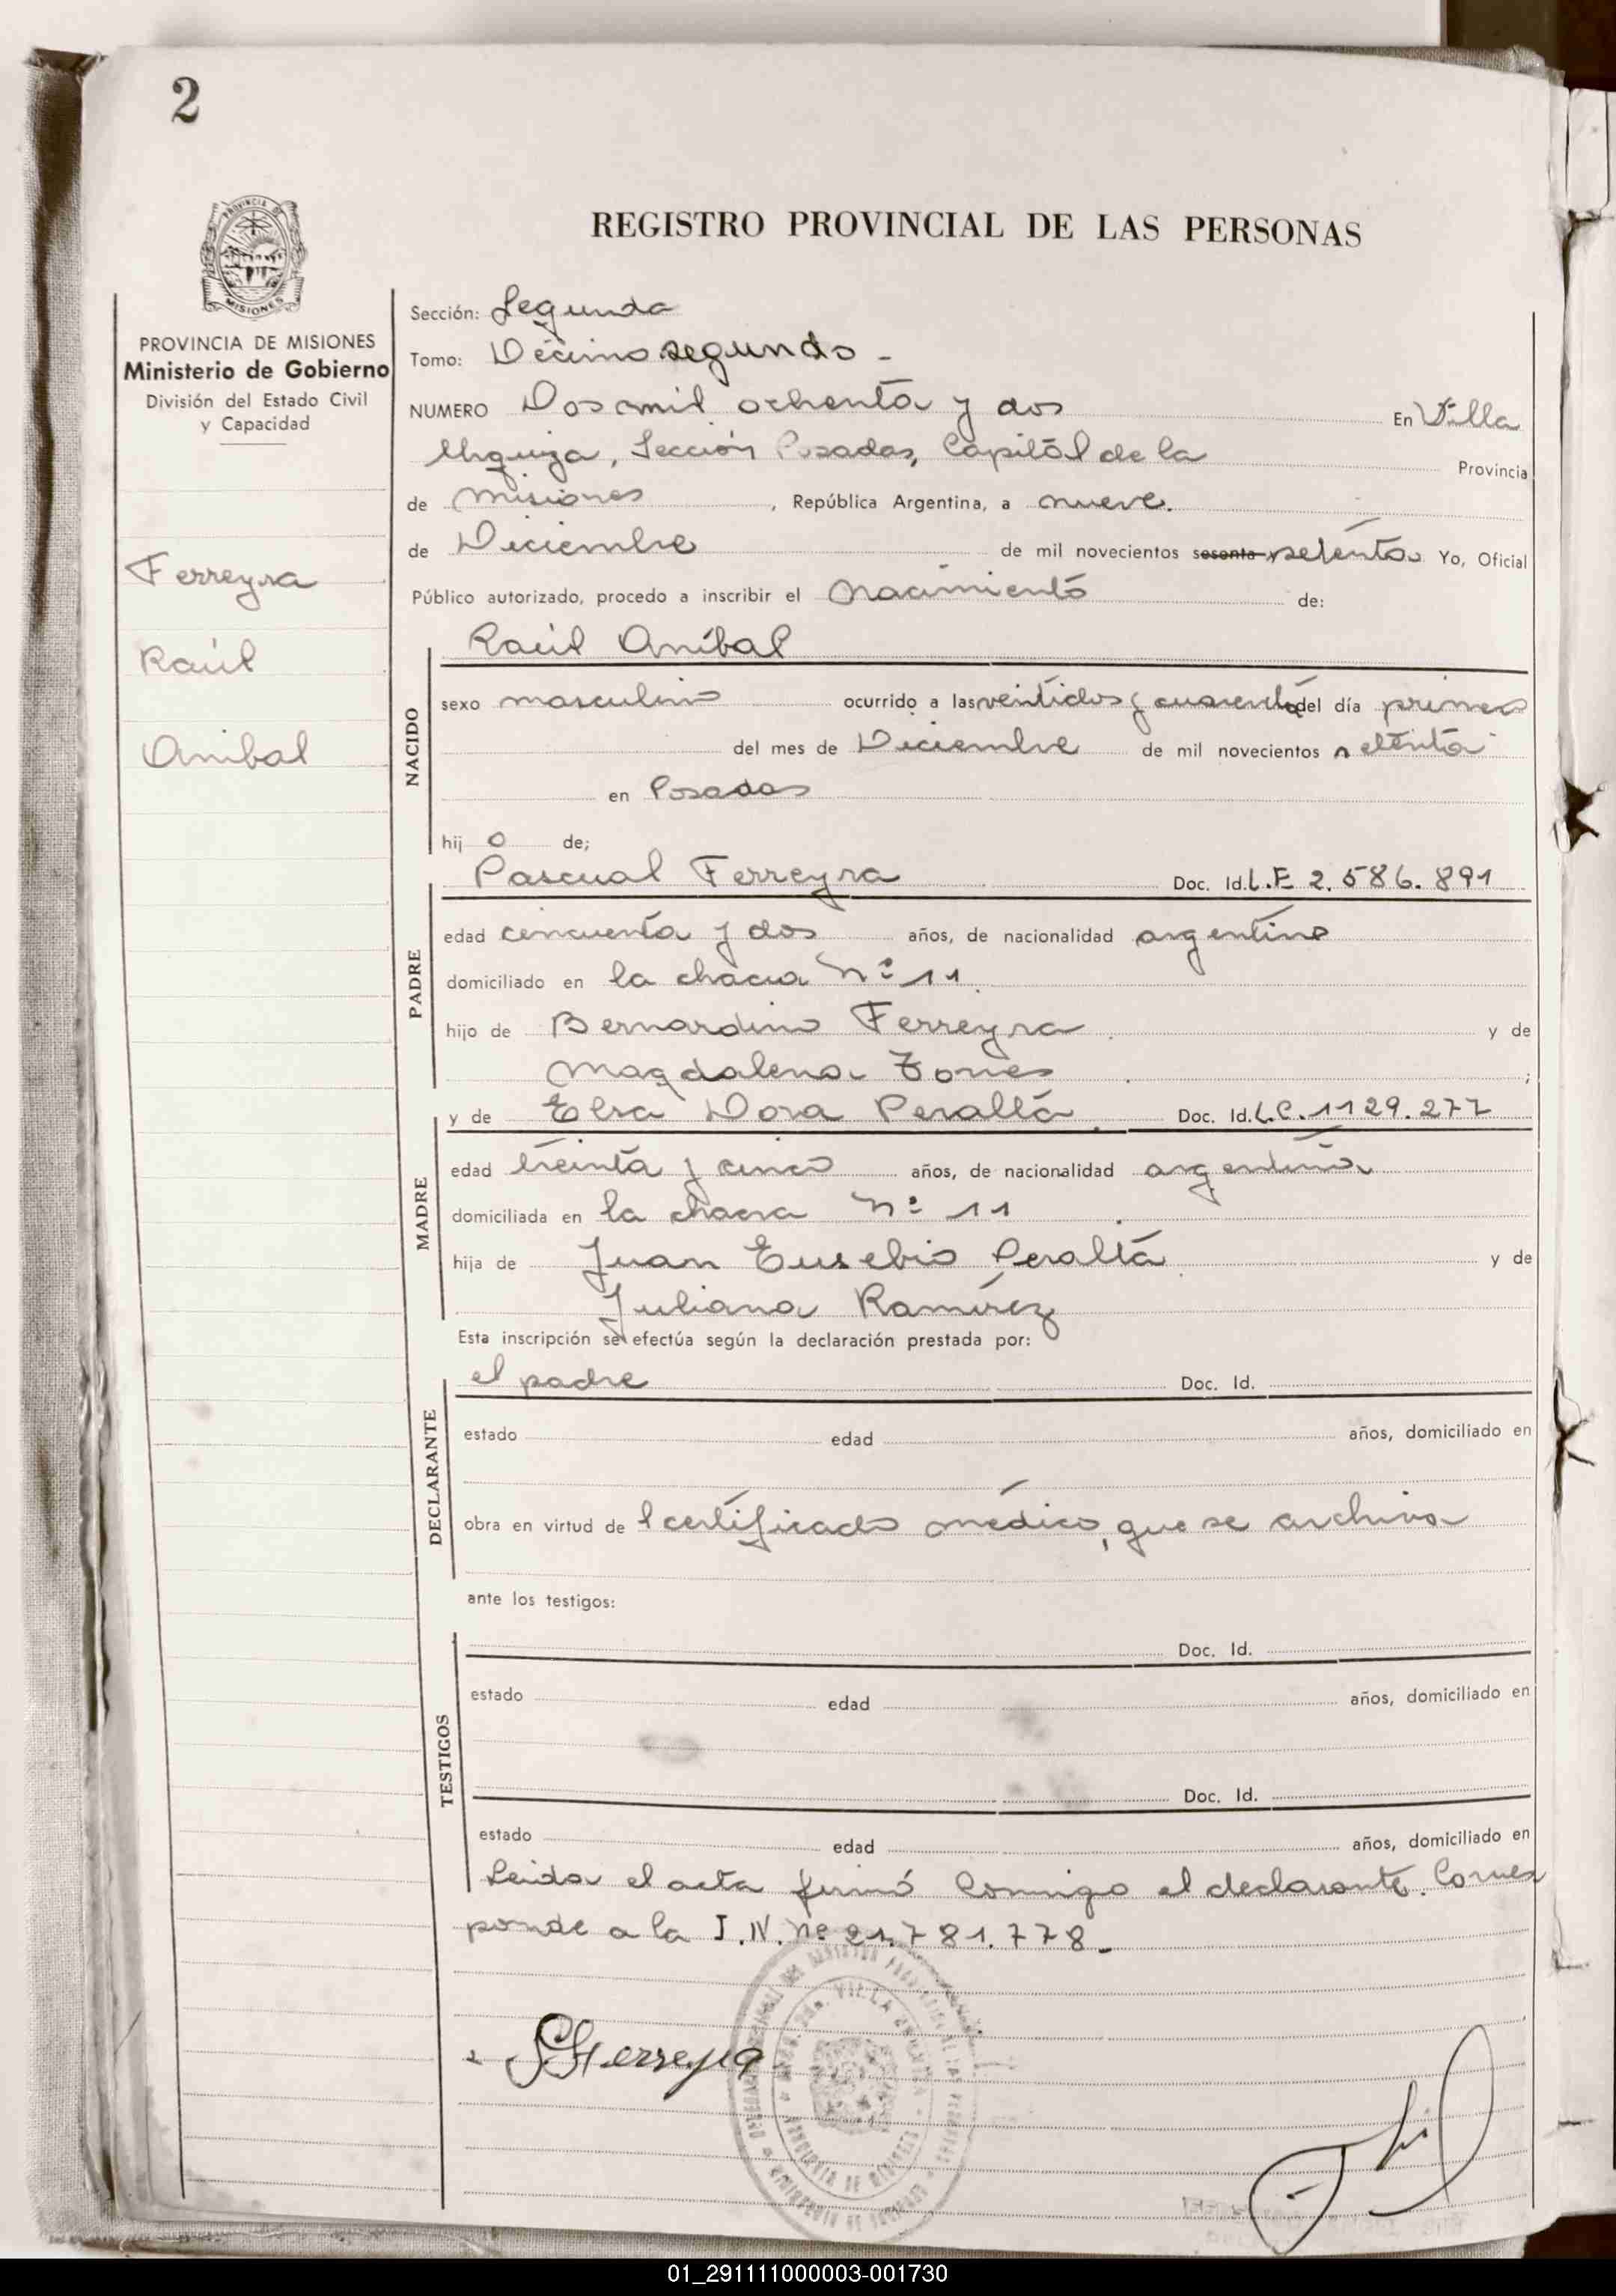 2
PROVINCIA DE
MISIONES
REGISTRO PROVINCIAL DE LAS PERSONAS
PROVINCIA DE MISIONES
Ministerio de Gobierno
División del Estado Civil
y Capacidad
Ferreyra
Raúl
Anibal
Sección: Segunda
Tomo: Décimo segundo -
NUMERO Dos mil ochenta y dos En Villa
Urquiza, Sección Posadas, Capitál de la Provincia
de Misiones, República Argentina, a nueve.
de Diciembre de mil novecientos sesenta setenta. Yo, Oficial
Público autorizado, procedo a inscribir el nacimiento de:
NACIDO
Raúl Aníbal
sexo masculino ocurrido a las veintidos y cuarenta del día primero
del mes de Diciembre de mil novecientos setenta
en Posadas
hijo de;
PADRE
Pascual Ferreyra Doc. Id. L.E 2.586.891
edad cincuenta y dos años, de nacionalidad argentino
domiciliado en la chacra Nº 11.
hijo de Bernardino Ferreyra y de
Magdalena Torres ;
MADRE
y de Elsa Dora Peralta Doc. Id. L.C. 1129.277
edad treinta y cinco años, de nacionalidad argentina
domiciliada en la chacra Nº 11
hija de Juan Eusebio Peralta y de
Juliana Ramírez
Esta inscripción se efectúa según la declaración prestada por:
DECLARANTE
el padre Doc. Id.
estado edad años, domiciliado en
obra en virtud de l certificado médico, que se archiva
ante los testigos:
TESTIGOS
Doc. Id.
estado edad años, domiciliado en
Doc. Id.
estado edad años, domiciliado en
Leida el acta firmó Conmigo el declarante. Corres
ponde a la I.N. Nº 21.781.778.-
Ferreyra
VILLA URQUIZA
PROVINCIA DE MISIONES
01_291111000003-001730